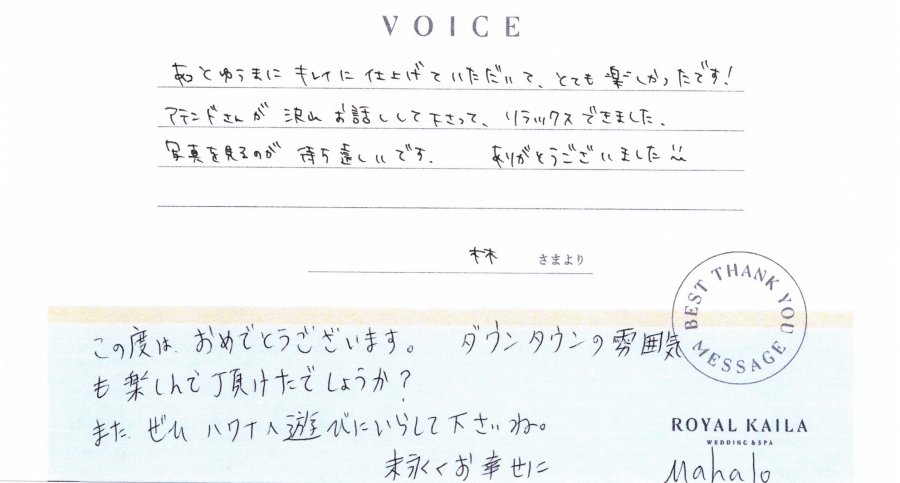 VOICE
あっとゆうまに キレイに 仕上げて いただいて、とても 楽しかったです!
アテンドさんが 沢山 お話しして下さって、リラックスできました。
写真を見るのが 待ち遠しいです. ありがとうございました
林 さまより
BEST THANK YOU MESSAGE
この度は、おめでとうございます。 ダウンタウンの雰囲気
も楽しんで頂けたでしょうか?
また、ぜひ ハワイへ遊びにいらして下さいね。
末永くお幸せに
ROYAL KAILA
WEDDING & SPA
Mahalo